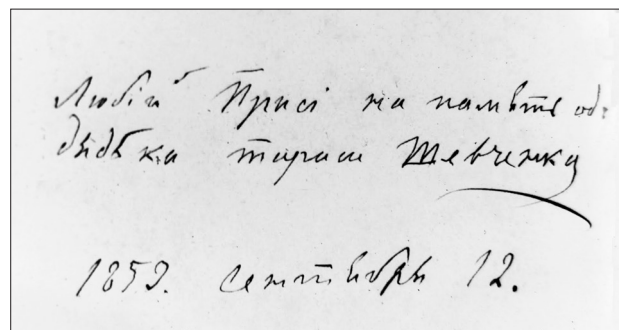 Любій Присі на память од
дядька тараса Шевченка
1859. Сентября 12.